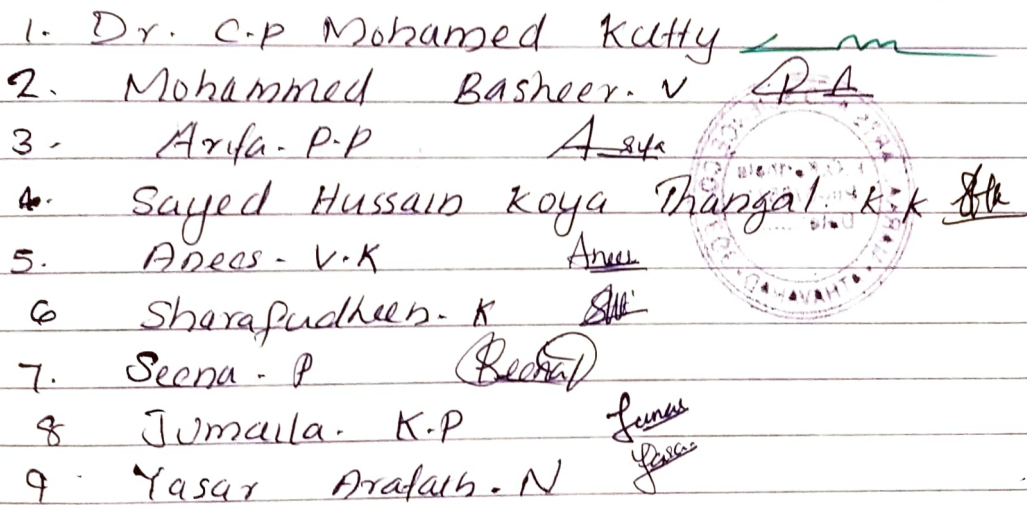 1. Dr. C.P Mohamed Kutty
2. Mohammed Basheer. V
3. Arifa. P.P
4. Sayed Hussain Koya Thangal. K.K
5. Anees. V.K Anees
6 Sharafudheen. K
7. Seena. P Seena
8 Jumaila. K.P
9. Yasar Arafath. N